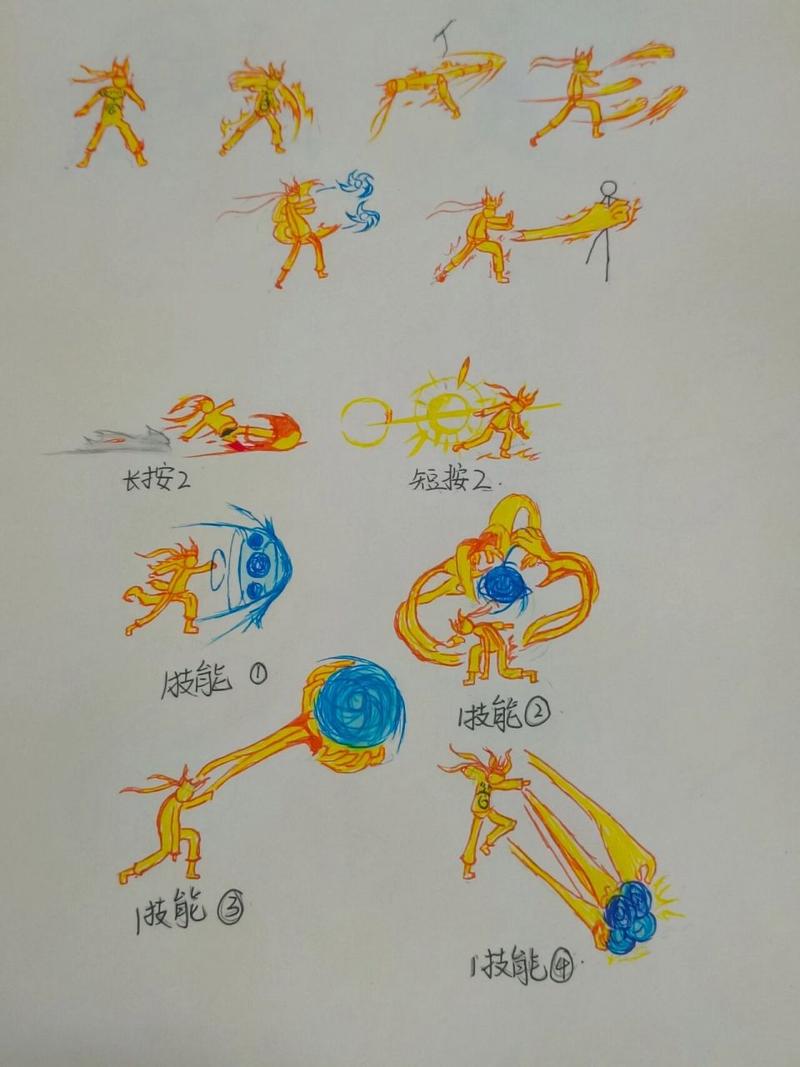 长按2
短按2.
1技能 ①
1技能②
1技能③
1技能④.